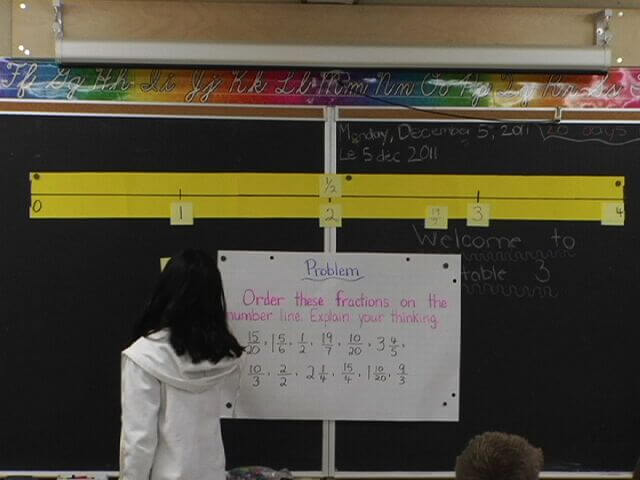 Ff Gg Hh Ii Jj Kk Ll Mm Nn Oo Pp Qq Rr Ss
Monday, December 5, 2011 20 days
Le 5 dec 2011
1/2
0 1 2 19/7 3 4
Welcome to
table 3
Problem
Order these fractions on the
number line. Explain your thinking.
15/20, 1 5/6, 1/2, 19/7, 10/20, 3 4/5,
10/3, 2/2, 2 1/4, 15/4, 1 10/20, 9/3